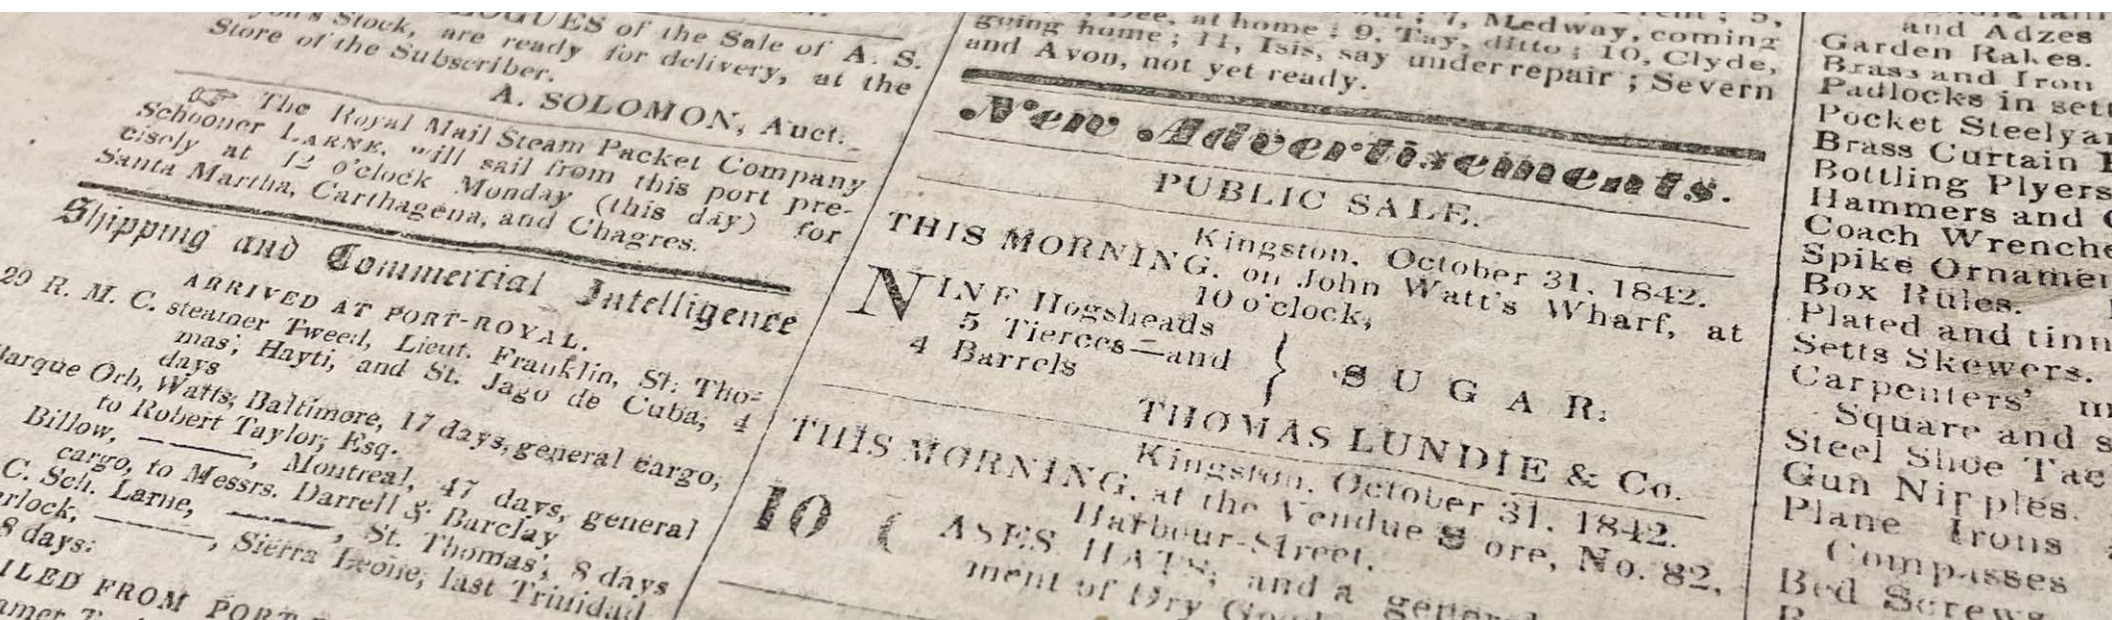 LOGUES of the Sale of A. S.
Stock, are ready for delivery, at the
Store of the Subscriber.
A. SOLOMON, Auct.
☞ The Royal Mail Steam Packet Company
Schooner LARNE, will sail from this port pre-
cisely at 12 o'clock Monday (this day) for
Santa Martha, Carthagena, and Chagres.
Shipping and Commercial Intelligence
ARRIVED AT PORT-ROYAL.
29 R. M. C. steamer Tweed, Lieut. Franklin, St. Tho-
mas', Hayti, and St. Jago de Cuba, 4
days
Barque Orb, Watts, Baltimore, 17 days, general cargo,
to Robert Taylor, Esq.
Billow, ———, Montreal, 47 days, general
cargo, to Messrs. Darrell & Barclay
C. Sch. Larne, ———, St. Thomas', 8 days
rlock, ———, Sierra Leone, last Trinidad
8 days:
ILED FROM PORT-
Dee, at home; 9, Tay, ditto; 10, Clyde,
going home; 11, Isis, say under repair; Severn
and Avon, not yet ready.
7, Medway, coming
New Advertisements.
PUBLIC SALE.
Kingston, October 31. 1842.
THIS MORNING, on John Watt's Wharf, at
10 o'clock,
NINE Hogsheads
5 Tierces—and
4 Barrels
} SUGAR.
THOMAS LUNDIE & Co.
Kingston, October 31. 1842.
THIS MORNING, at the Vendue S ore, No. 82,
Harbour-street.
10 CASES HATS, and a general
ment of Dry
and Adzes
Garden Rakes.
Brass and Iron
Padlocks in sett
Pocket Steelyar
Brass Curtain
Bottling Plyers
Hammers and
Coach Wrenche
Spike Ornamen
Box Rules.
Plated and tinn
Setts Skewers.
Carpenters'
Square and s
Steel Shoe Tac
Gun Nipples.
Plane Irons
Compasses
Bed Screws